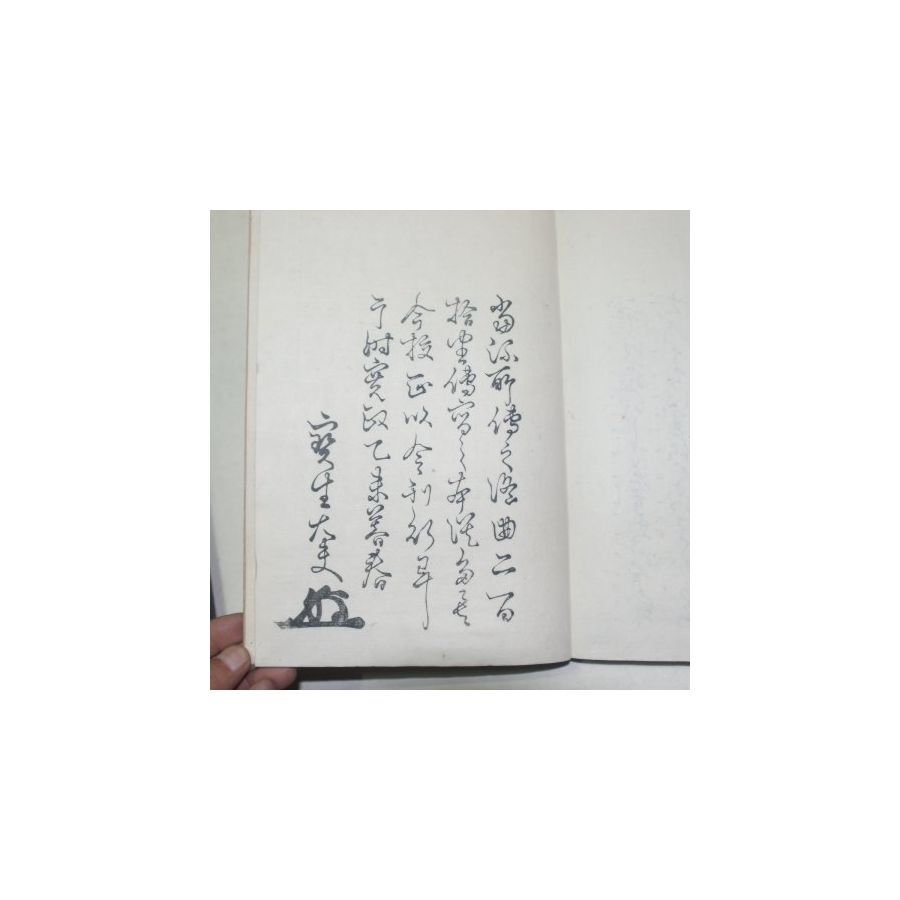 當流所傳之謠曲二百
拾番傳寫之本誤多矣
今校正以令刊行畢
于時寛政乙未暮春
寶生大夫